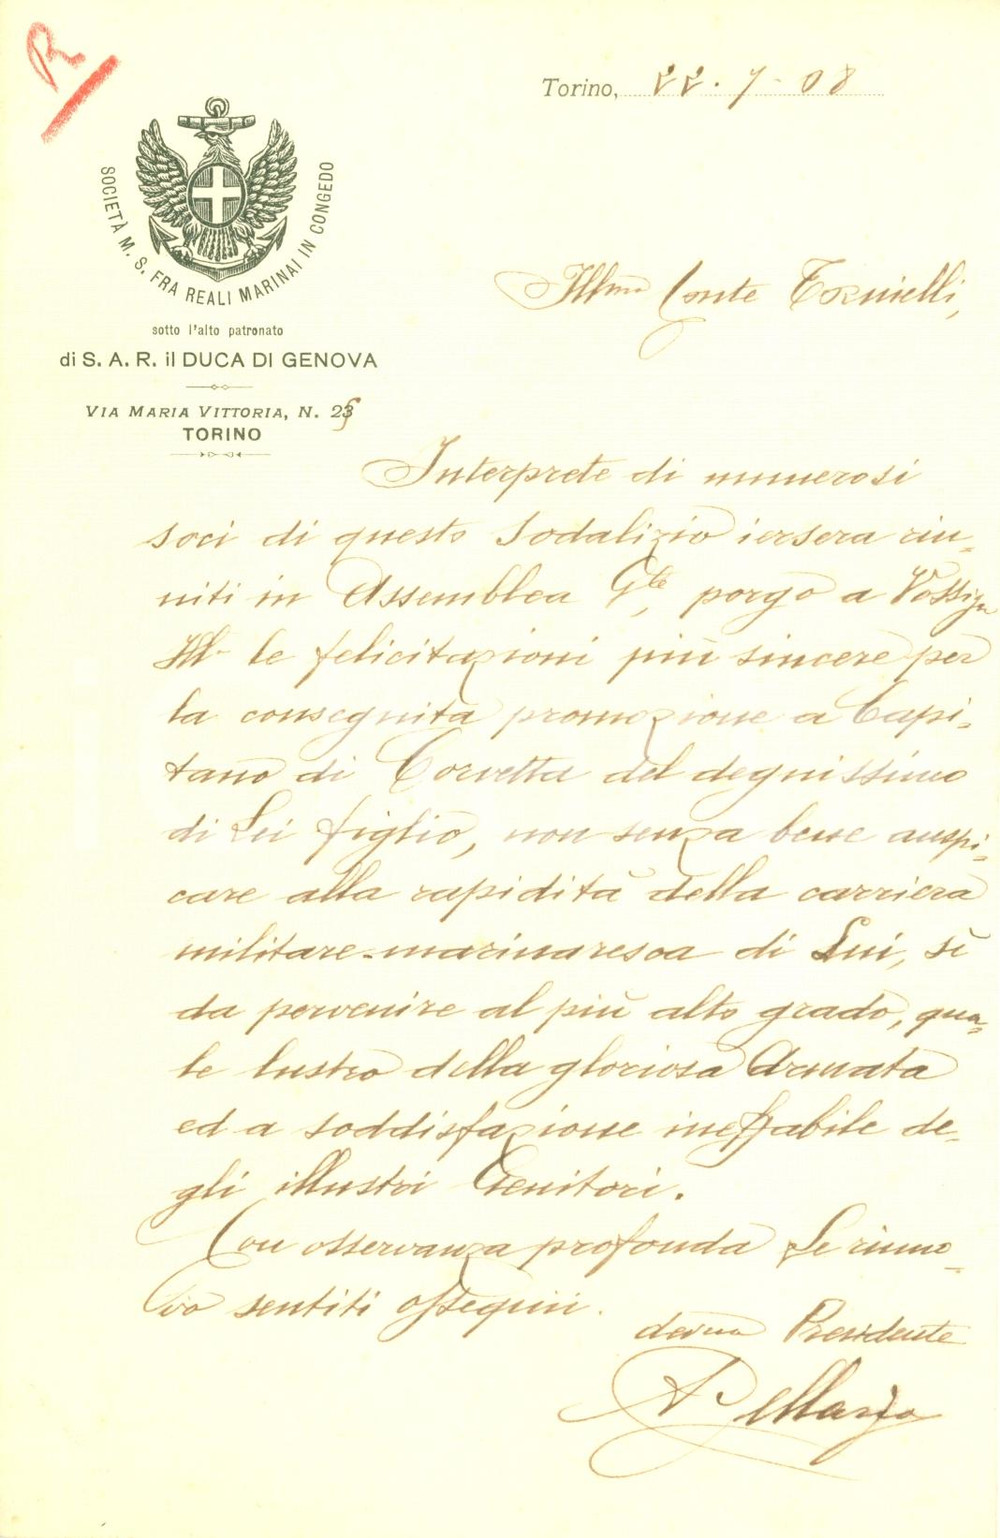 R
Torino, 22. 7 - 08
SOCIETÀ M. S. FRA REALI MARINAI IN CONGEDO
sotto l'alto patronato
di S. A. R. il DUCA DI GENOVA
VIA MARIA VITTORIA, N. 23
TORINO
Illmo Conte Tornielli,
Interprete di numerosi
soci di questo sodalizio iersera riu-
niti in Assemblea Gle, porgo a Vossign
Ill le felicitazioni più sincere per
la conseguita promozione a Capi-
tano di Corvetta del degnissimo
di Lei figlio, non senza bene auspi-
care alla rapidità della carriera
militare-marinaresca di Lui, sì
da pervenire al più alto grado, qua-
le lustro della gloriosa Armata
ed a soddisfazione ineffabile de-
gli illustri Genitori.
Con osservanza profonda Le rinno-
vo sentiti ossequii.
devmo Presidente